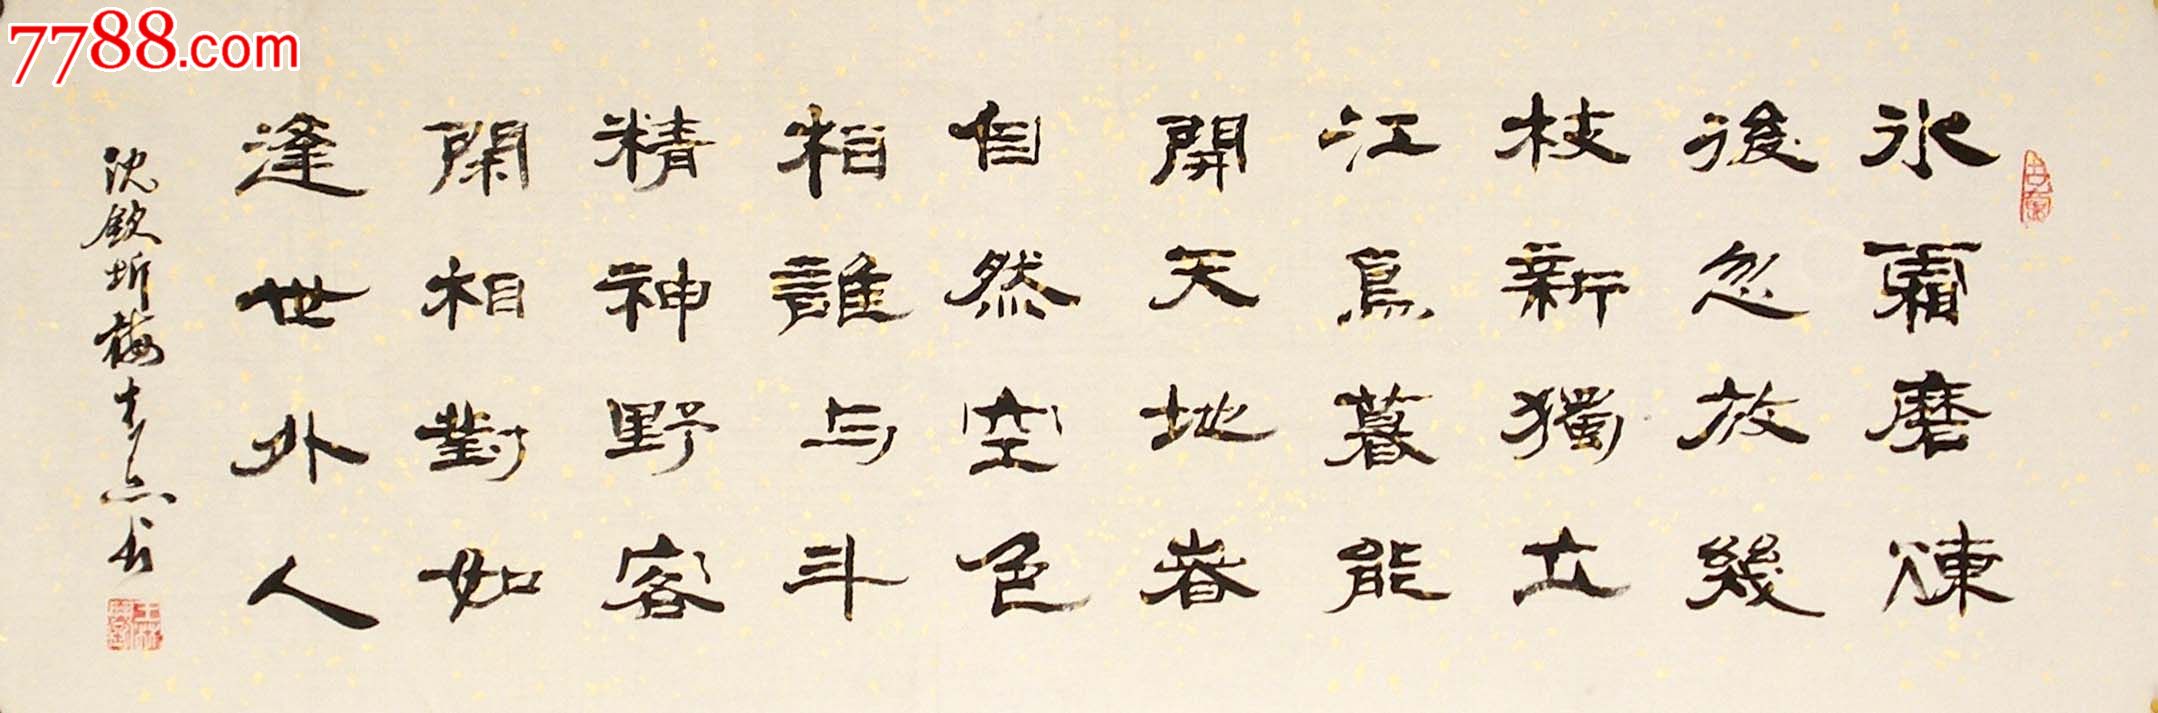 7788.com
冰霜磨煉
後忽放幾
枝新獨立
江烏暮能
開天地春
自然空色
相誰与斗
精神野客
閑相對如
逢世外人
沈欽圻梅